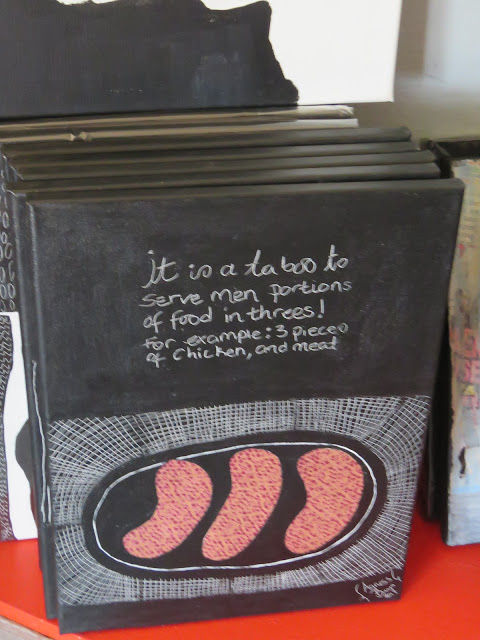 it is a taboo to
serve men portions
of food in threes!
for example: 3 pieces
of chicken, and meat